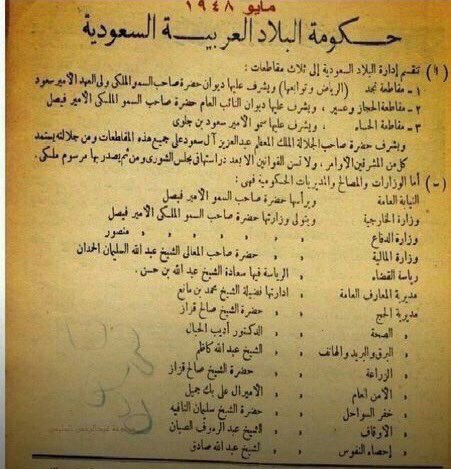 مايو ١٩٤٨
حكومة البلاد العربية السعودية
(أ) تقسم إدارة البلاد السعودية إلى ثلاث مقاطعات :
١ – مقاطعة نجد (الرياض وتوابعها) ويشرف عليها ديوان حضرة صاحب السمو الملكى ولى العهد الأمير سعود
٢ – مقاطعة الحجاز وعسير ، ويشرف عليها ديوان النائب العام حضرة صاحب السمو الملكى الأمير فيصل
٣ – مقاطعة الحساء ، ويشرف عليها سمو الأمير سعود بن جلوى
ويشرف حضرة صاحب الجلالة الملك المعظم عبد العزيز آل سعود على جميع هذه المقاطعات ومن جلالته يستمد
كل من المشرفين الأوامر ، ولا تسن القوانين الا بعد دراستها فى مجلس الشورى ومن ثم يصدر بها مرسوم ملكى .
(ب) أما الوزارات والمصالح والمديريات الحكومية فهى :
النيابة العامة ويرأسها حضرة صاحب السمو الأمير فيصل
وزارة الخارجية ويتولى وزارتها حضرة صاحب السمو الملكى الأمير فيصل
وزارة الدفاع » » » » » » منصور
وزارة المالية » » حضرة صاحب المعالى الشيخ عبد الله السليمان الحمدان
رياسة القضاء الرياسة فيها سعادة الشيخ عبد الله بن حسن .
مديرية المعارف العامة ادارتها فضيلة الشيخ محمد بن مانع
مديرية الحج » حضرة الشيخ صالح قزاز
» الصحة » الدكتور أديب الحبال
» البرق والبريد والهاتف » الشيخ عبد الله كاظم
» الزراعة » حضرة الشيخ صالح قزاز
» الأمن العام » الأميرال على بك جميل
» خفر السواحل » حضرة الشيخ سليمان النافيه
» الأوقاف » الشيخ عبد الرءوف الصبان
» إحصاء النفوس » الشيخ عبد الله صادق